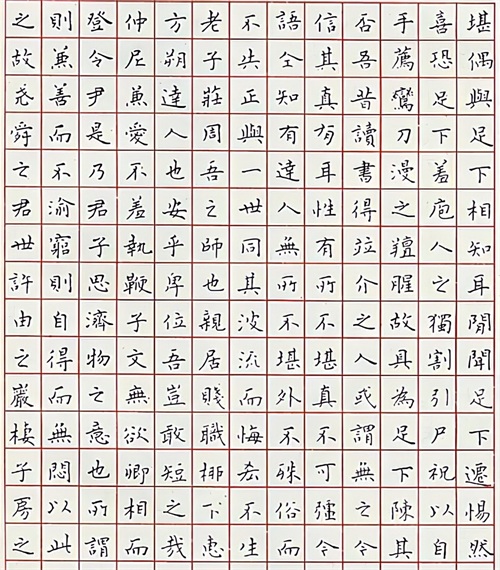 堪偶與足下相知耳閒聞足下遷惕然
喜恐足下羞庖人之獨割引尸祝以自
手薦鸞刀漫之羶腥故具為足下陳其
否吾昔讀書得竝介之人或謂無之今
信其真有耳性有所不堪真不可彊今
語仝知有達人無所不堪外不殊俗而
不共正與一世同其波流而悔吝不生
老子莊周吾之師也親居賤職柳下惠
方朔達人也安乎卑位吾豈敢短之哉
仲尼兼愛不羞執鞭子文無欲卿相而
登令尹是乃君子思濟物之意也所謂
則兼善而不渝窮則自得而無悶以此
之故堯舜之君世許由之巖棲子房之